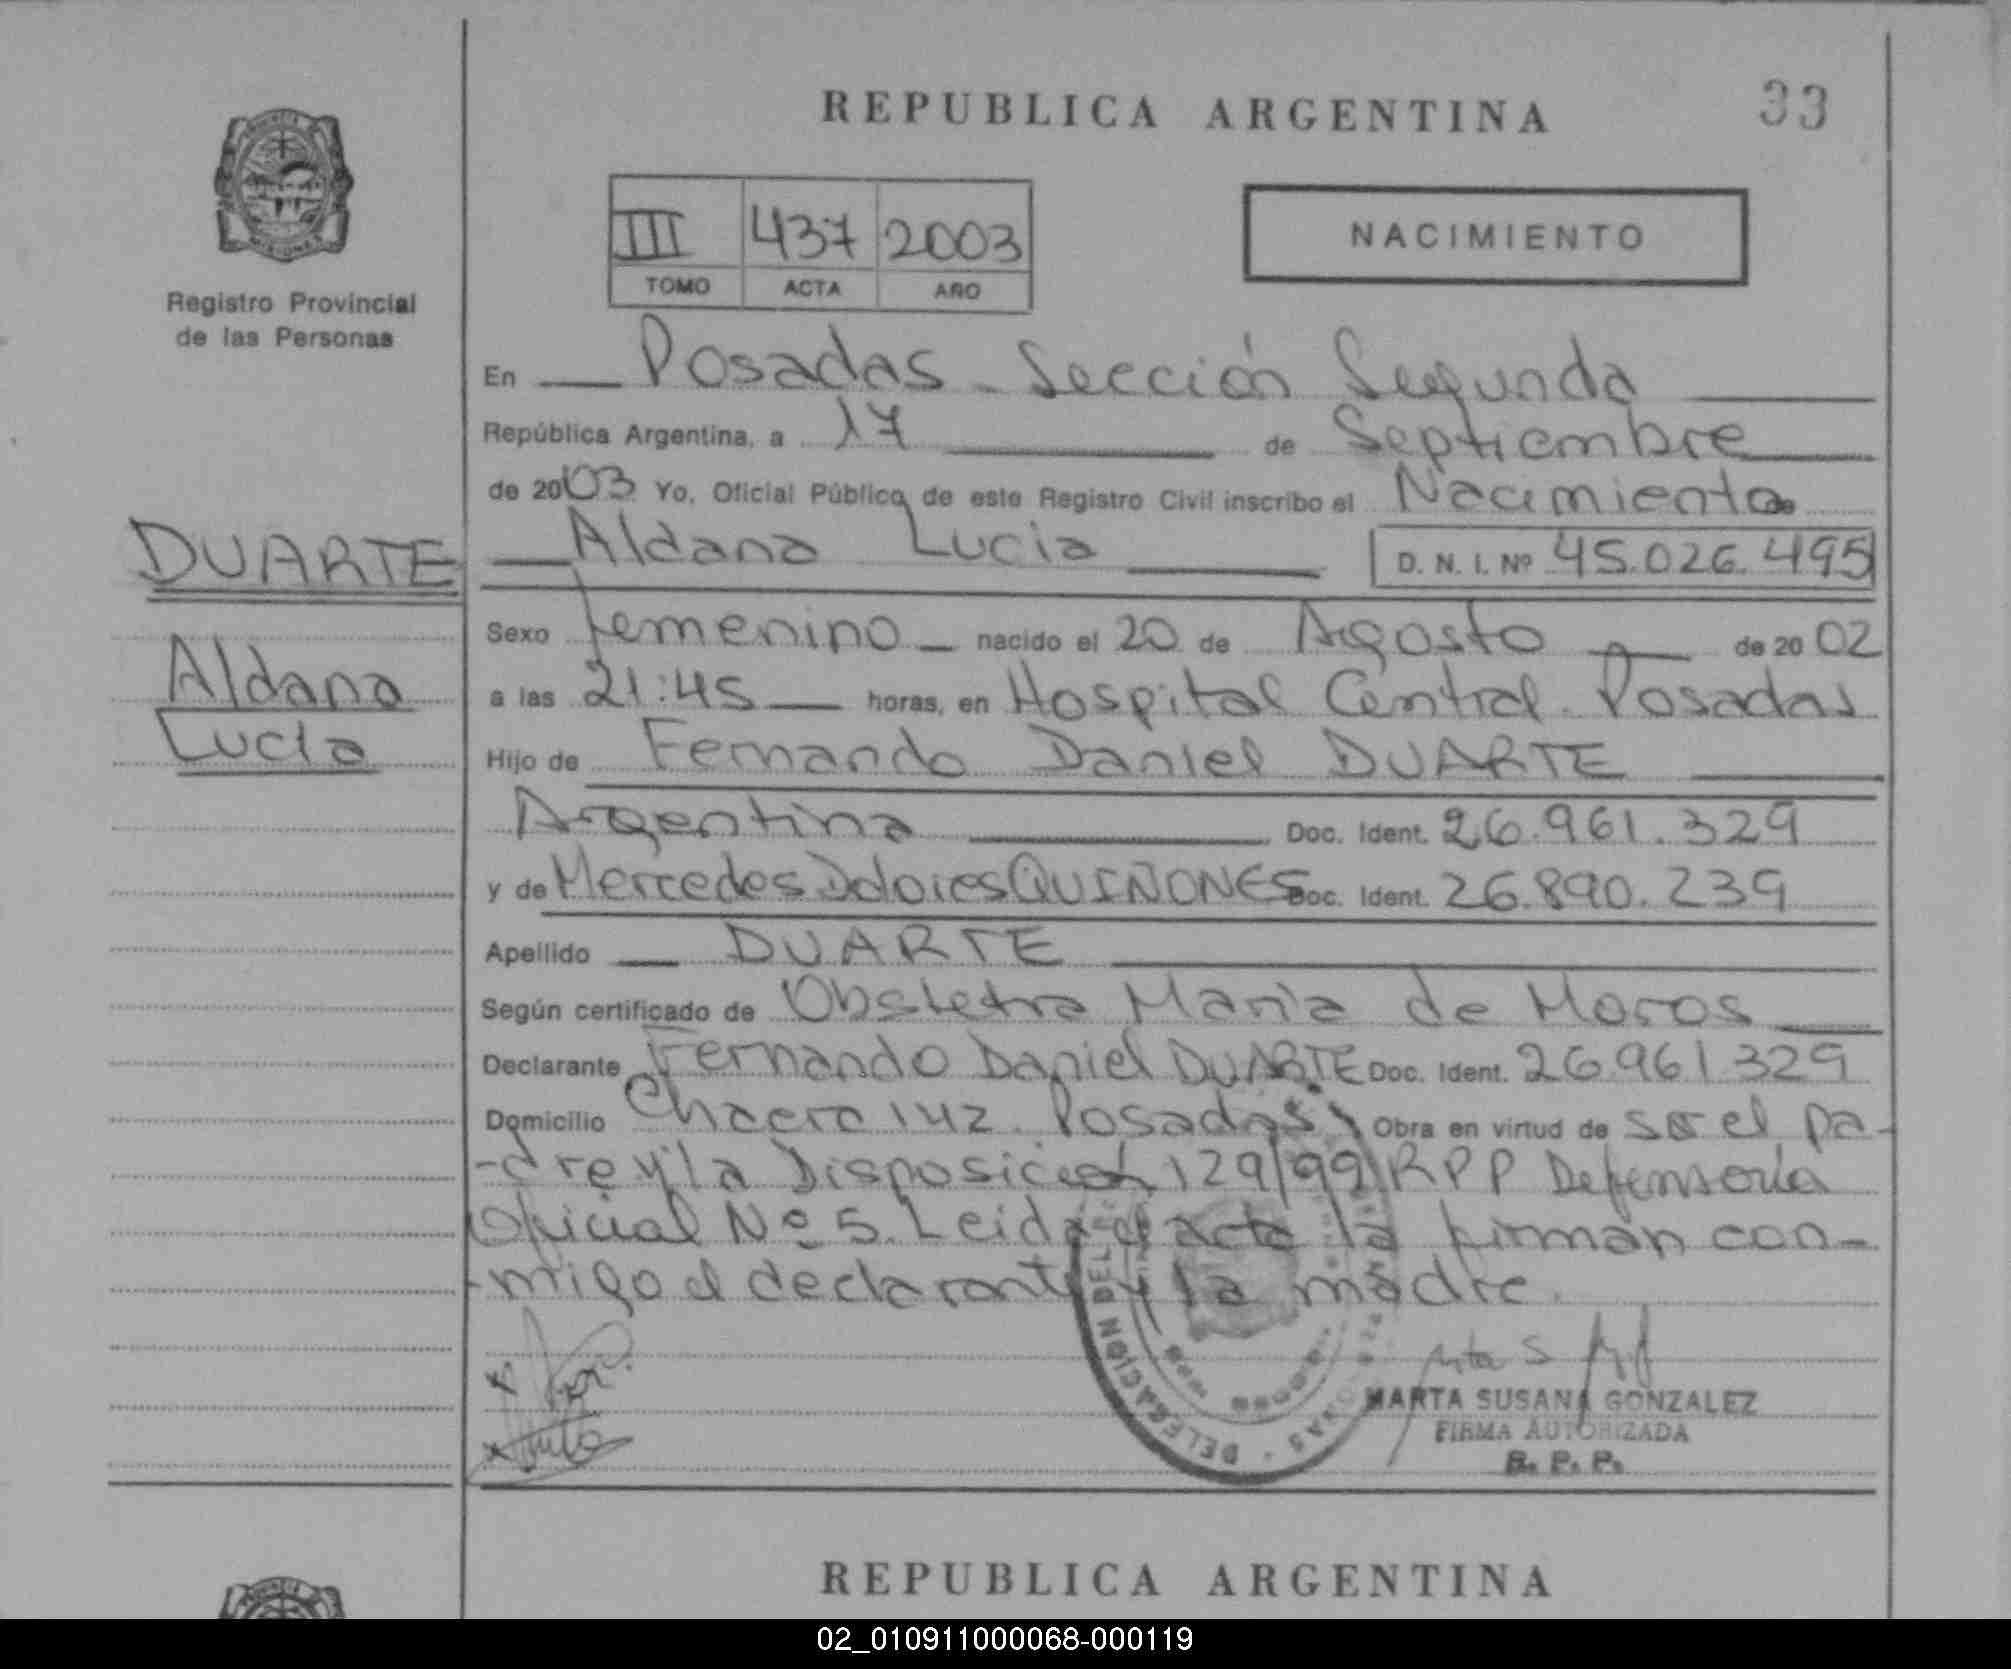 REPUBLICA ARGENTINA
33
III 437 2003
TOMO ACTA AÑO
NACIMIENTO
Registro Provincial
de las Personas
En Posadas - Sección Segunda
República Argentina, a 17 de Septiembre
de 2003 Yo, Oficial Público de este Registro Civil inscribo el Nacimiento de
DUARTE
Aldana Lucia D. N. I. Nº 45.026.495
Aldana
Lucia
Sexo femenino nacido el 20 de Agosto de 2002
a las 21:45 horas, en Hospital Central - Posadas
Hijo de Fernando Daniel DUARTE
Argentina Doc. Ident. 26.961.329
y de Mercedes Dolores QUIÑONES Doc. Ident. 26.890.239
Apellido DUARTE
Según certificado de Obstetra Maria de Moros
Declarante Fernando Daniel DUARTE Doc. Ident. 26.961.329
Domicilio Chacra 142 - Posadas Obra en virtud de ser el pa-
-dre y la Disposición 129/99 RPP Defensoría
Oficial Nº 5. Leida el acta la firman con-
-migo el declarante y la madre.
DELEGACIÓN
MARTA SUSANA GONZALEZ
FIRMA AUTORIZADA
R. P. P.
REPUBLICA ARGENTINA
02_010911000068-000119